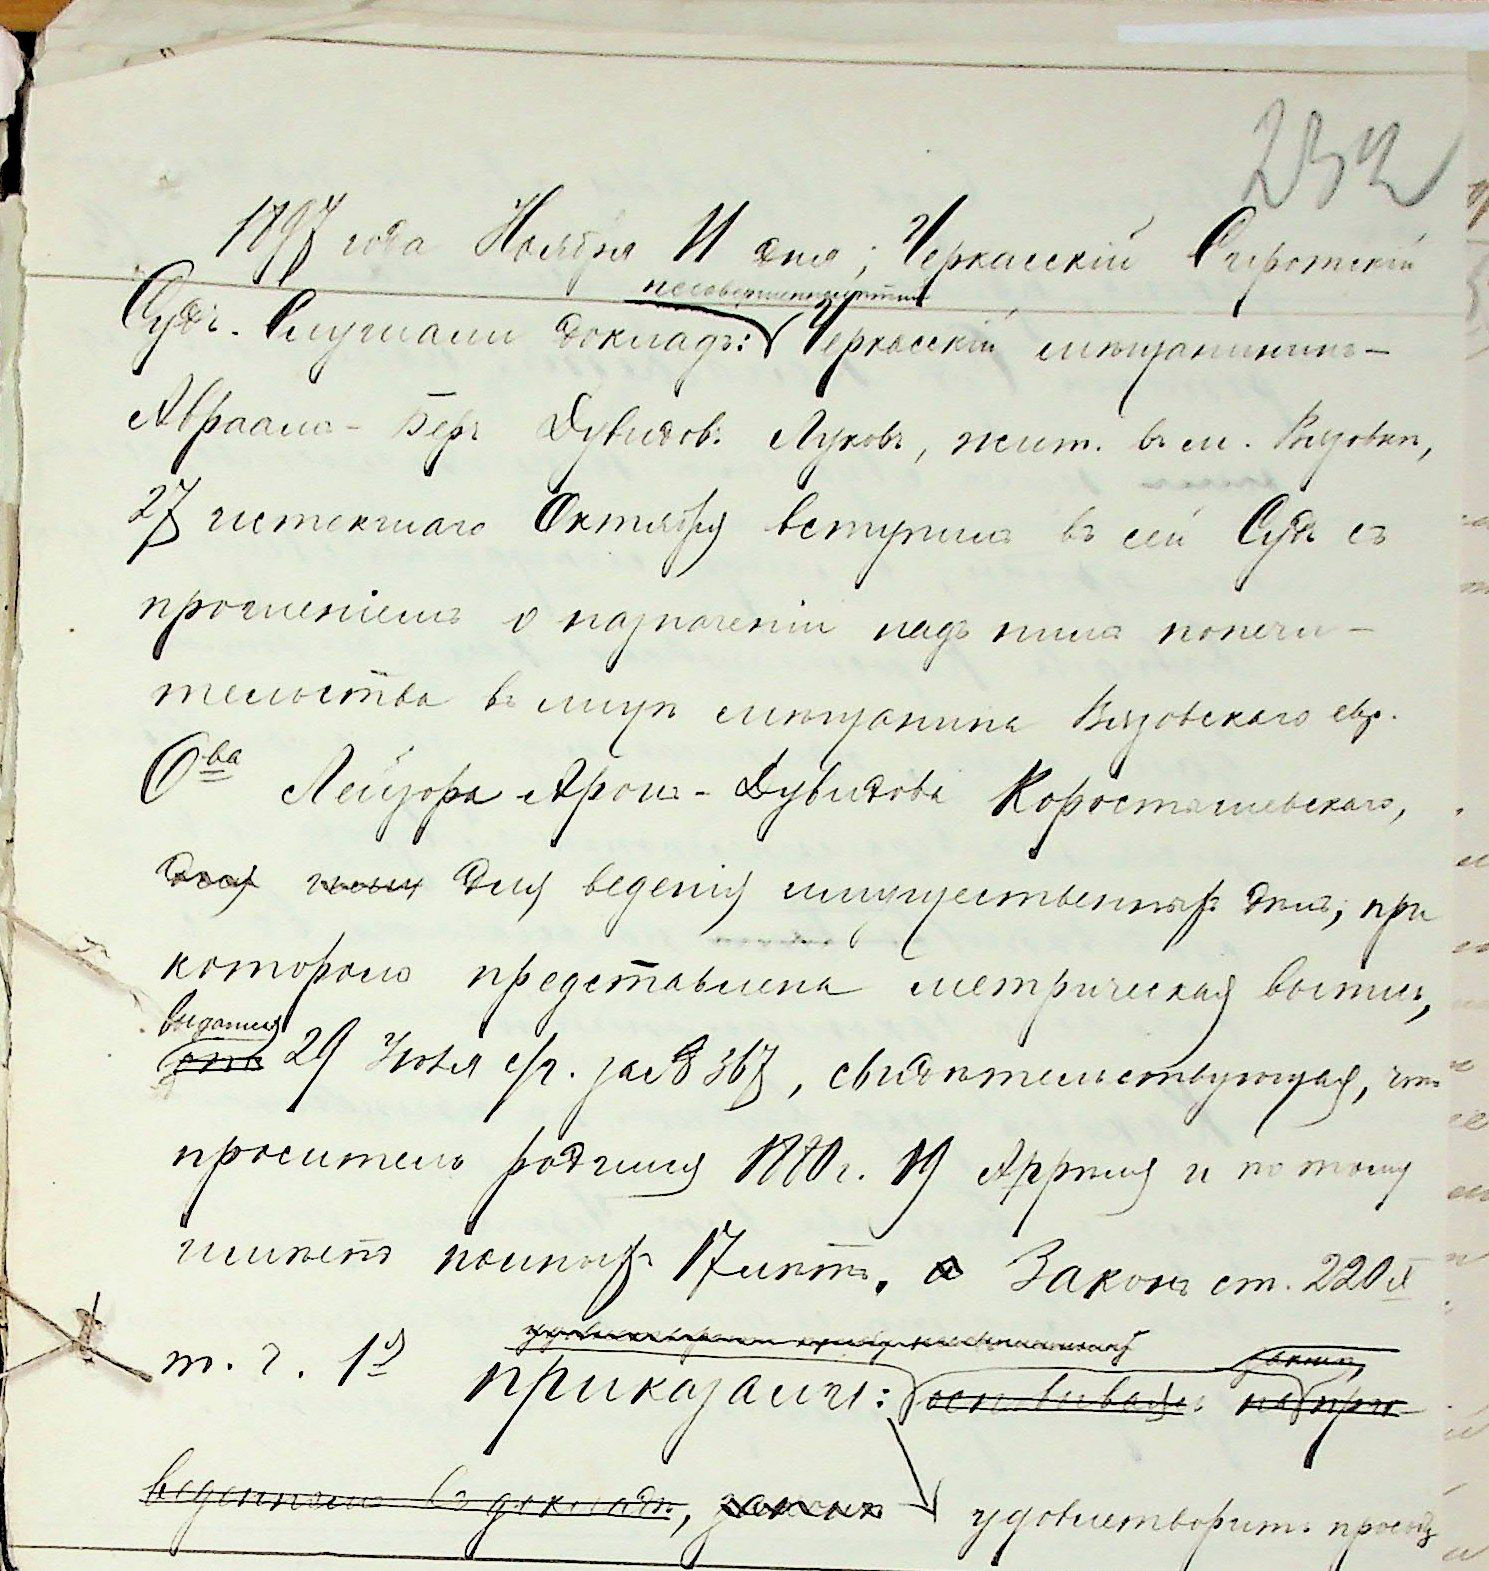 232
1897 года Ноября 11 дня, Черкасскій Сиротскій
несовершеннолѣтній
Судъ. Слушали докладъ: Черкасскій мѣщанинъ –
Авраамъ-Беръ Дувидовъ Луковъ, жит. въ м. Вязовкѣ,
27 истекшаго Октября вступилъ въ сей Судъ съ
прошеніемъ о назначеніи надъ нимъ попечи-
тельства въ лицѣ мѣщанина Вязовскаго евр.
О-ва Лейзора Аронъ-Дувидова Коросташевскаго,
для веденія имущественныхъ дѣлъ, при
которомъ представлена метрическая выпись,
выданная
29 Іюля с/г. за № 367, свидѣтельствующая, что
проситель родился 1880 г. 19 Апрѣля и потому
имѣетъ полныхъ 17 лѣтъ. а Законъ ст. 220й
т. Х ч. 1й
приказали: основываясь на при-
веденномъ въ докладѣ, удовлетворить просьбу